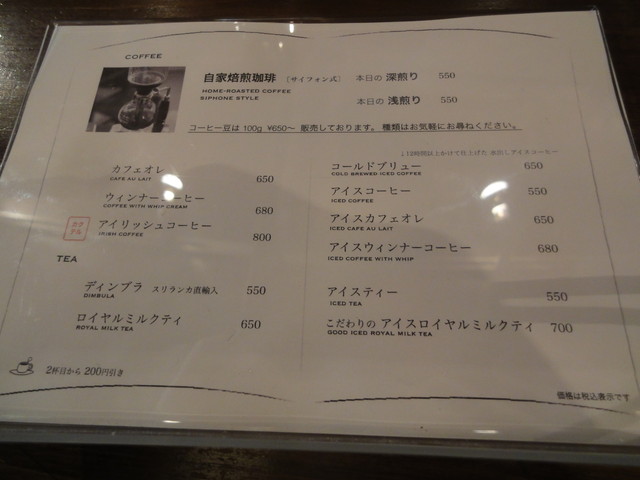 COFFEE
自家焙煎珈琲 [サイフォン式] 本日の 深煎り 550
HOME-ROASTED COFFEE
SIPHONE STYLE
本日の 浅煎り 550
コーヒー豆は 100g ¥650〜 販売しております。種類はお気軽にお尋ねください。
カフェオレ 650
CAFE AU LAIT
ウィンナーコーヒー 680
COFFEE WITH WHIP CREAM
カクテル アイリッシュコーヒー 800
IRISH COFFEE
TEA
ディンブラ スリランカ直輸入 550
DIMBULA
ロイヤルミルクティ 650
ROYAL MILK TEA
2杯目から 200円引き
コールドブリュー 650
COLD BREWED ICED COFFEE
アイスコーヒー 550
ICED COFFEE
アイスカフェオレ 650
ICED CAFE AU LAIT
アイスウィンナーコーヒー 680
ICED COFFEE WITH WHIP
アイスティー 550
ICED TEA
こだわりの アイスロイヤルミルクティ 700
GOOD ICED ROYAL MILK TEA
価格は税込表示です